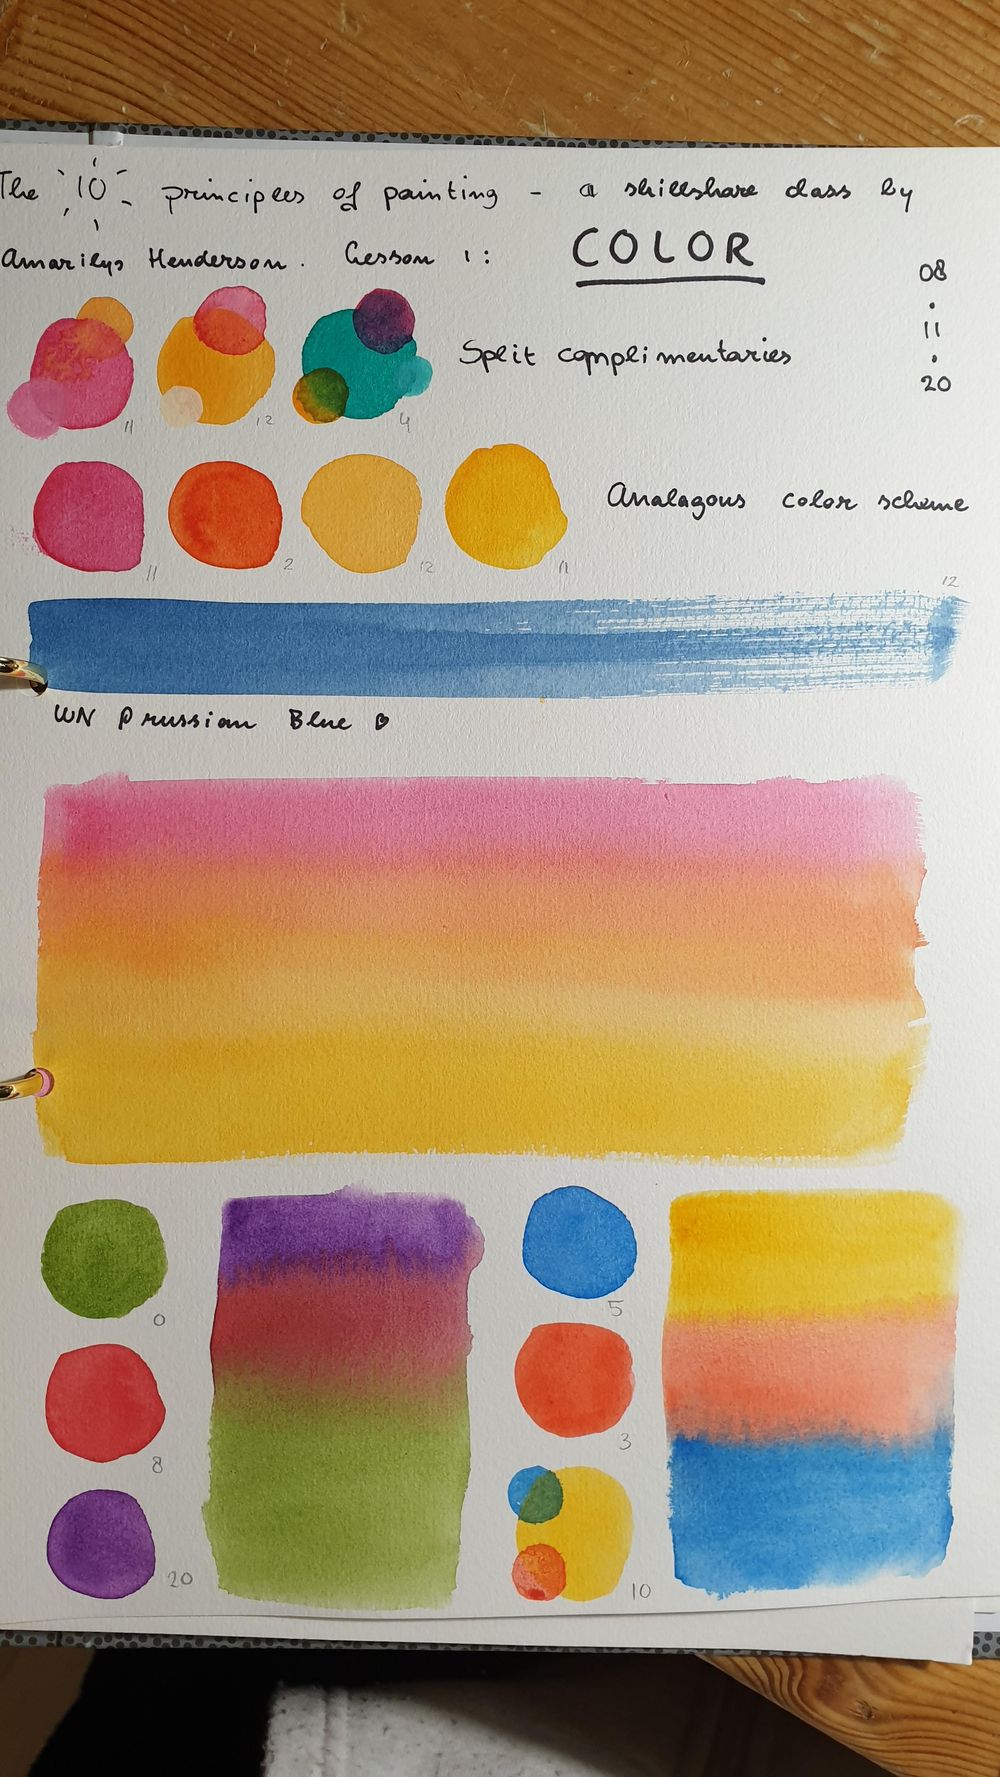 The 10 principles of painting - a skillshare class by
Amarilys Henderson. Lesson 1: COLOR
08
.
11
.
20
Split complimentaries
11 12 4
Analagous color scheme
11 2 12 11
12
WN Prussian Blue
0 5
8 3
20 10